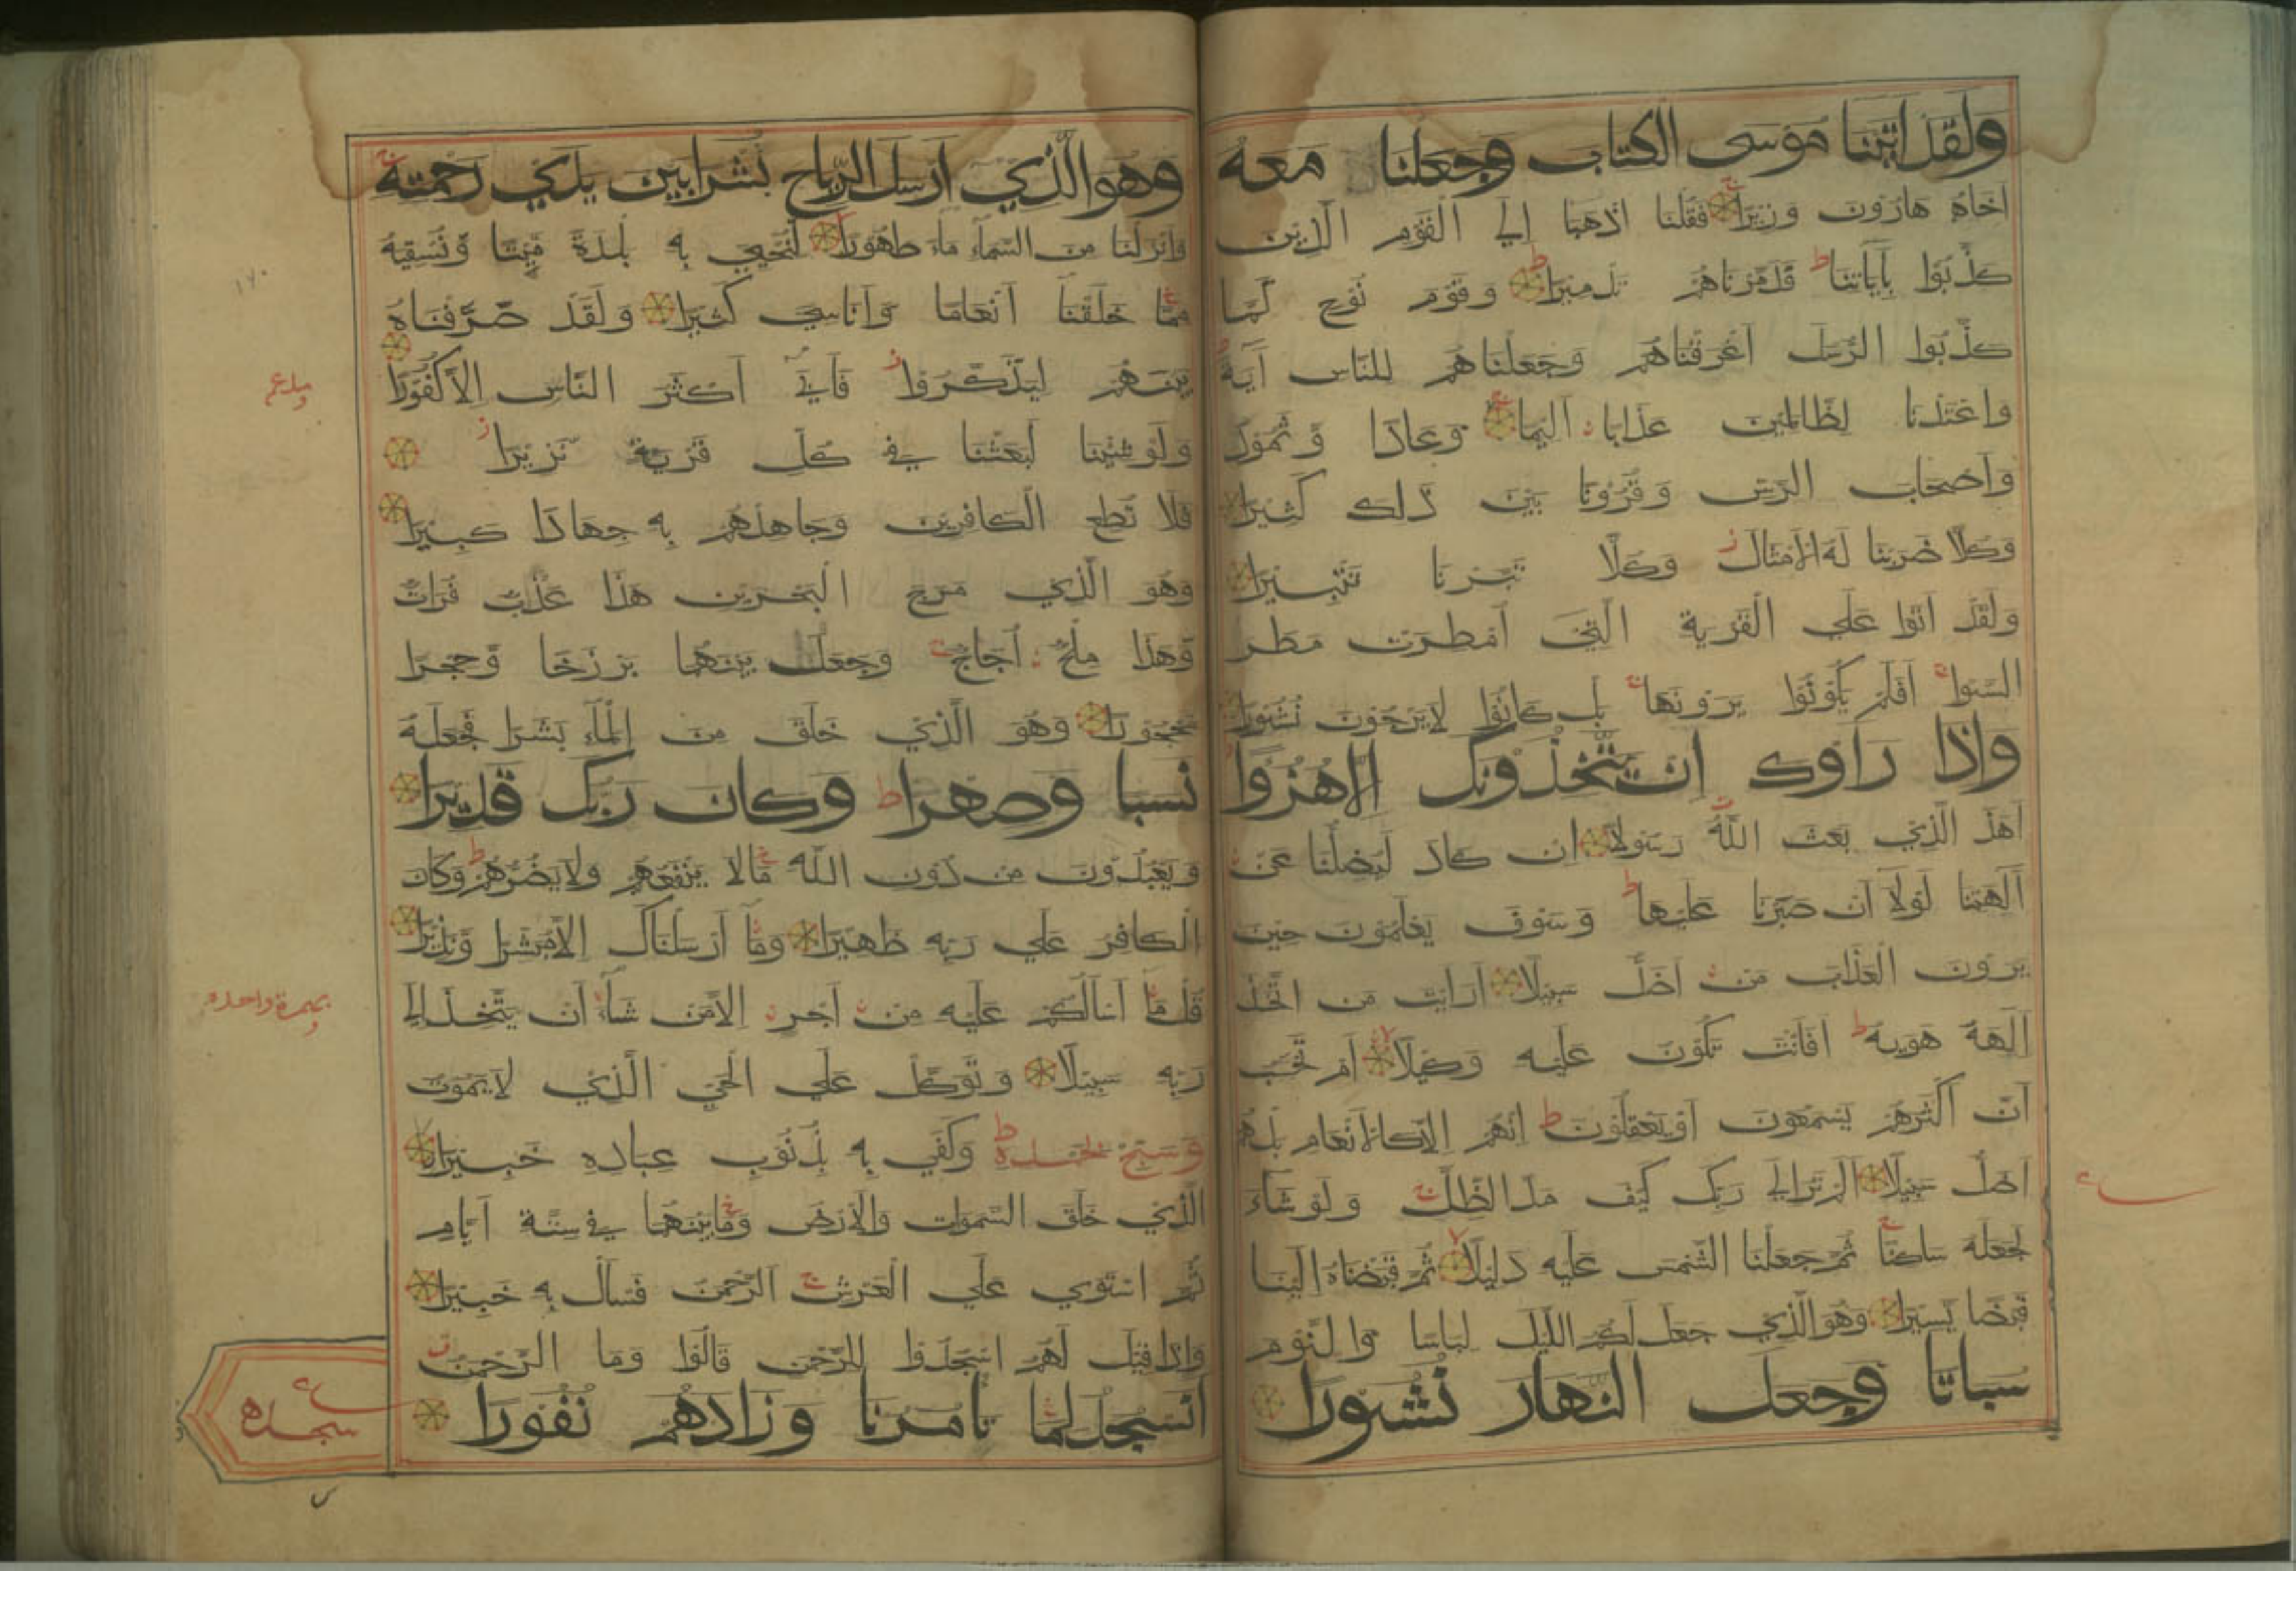 ولقد اتينا موسى الكتاب وجعلنا معه
اخاه هارون وزيرا فقلنا اذهبا الي القوم الذين
كذبوا بآياتنا فدمرناهم تدميرا وقوم نوح لما
كذبوا الرسل اغرقناهم وجعلناهم للناس آية
واعتدنا لظالمين عذابا اليما وعادا وثمود
واصحاب الرس وقرونا بين ذلك كثيرا
وكلا ضربنا له الامثال وكلا تبرنا تتبيرا
ولقد اتوا علي القرية التي امطرت مطر
السوا افلم يكونوا يرونها بل كانوا لا يرجون نشورا
واذا راوك ان يتخذونك الا هزوا
اهذ الذي بعث الله رسولا ان كاد ليضلنا عن
آلهتنا لولا ان صبرنا عليها وسوف يعلمون حين
يرون العذاب من اضل سبيلا ارايت من اتخذ
آلهة هويه افانت تكون عليه وكيلا ام تحسب
ان اكثرهم يسمعون او يعقلون انهم الا كالانعام بل هم
اضل سبيلا الم تر الي ربك كيف مد الظل ولو شاء
لجعله ساكنا ثم جعلنا الشمس عليه دليلا ثم قبضناه الينا
قبضا يسيرا وهو الذي جعل لكم الليل لباسا والنوم
سباتا وجعل النهار نشورا
وهو الذي ارسل الرياح بشرا بين يدي رحمته
وانزلنا من السماء ماء طهورا لنحيي به بلدة ميتا ونسقيه
مما خلقنا انعاما واناسي كثيرا ولقد صرفناه
بينهم ليذكروا فابي اكثر الناس الا كفورا
ولو شئنا لبعثنا في كل قرية نذيرا
فلا تطع الكافرين وجاهدهم به جهادا كبيرا
وهو الذي مرج البحرين هذا عذب فرات
وهذا ملح اجاج وجعل بينهما برزخا وحجرا
محجورا وهو الذي خلق من الماء بشرا فجعله
نسبا وصهرا وكان ربك قديرا
ويعبدون من دون الله مالا ينفعهم ولا يضرهم وكان
الكافر علي ربه ظهيرا وما ارسلناك الا مبشرا ونذيرا
قل ما اسالكم عليه من اجر الا من شاء ان يتخذ الي
ربه سبيلا وتوكل علي الحي الذي لا يموت
وسبح بحمده وكفي به بذنوب عباده خبيرا
الذي خلق السموات والارض وما بينهما في ستة ايام
ثم استوي علي العرش الرحمن فسال به خبيرا
واذا قيل لهم اسجدوا للرحمن قالوا وما الرحمن
انسجد لما تامرنا وزادهم نفورا
١٧٠
بهمزة واحده
سجده